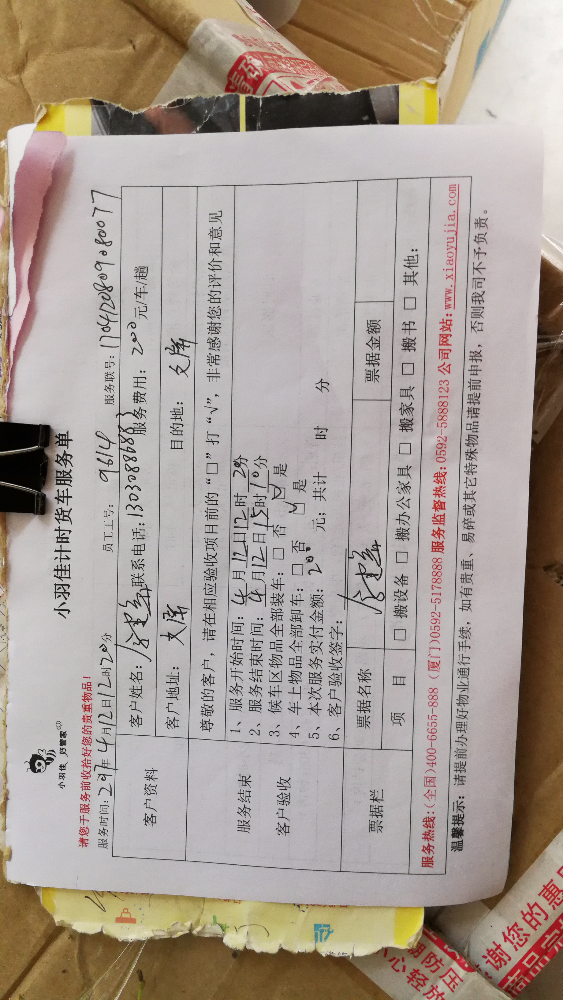 小羽佳计时货车服务单
小羽佳 归管家
请您于服务前收拾好您的贵重物品!
服务时间: 2017年4月12日12时20分 员工工号: 9614 服务联号: 1704120809080077
客户资料
客户姓名: 联系电话: 13030886883 服务费用: 200 元/车/趟
客户地址: 目的地:
尊敬的客户, 请在相应验收项目前的“□”打“√”, 非常感谢您的评价和意见
服务结束
客户验收
1、服务开始时间: 4月12日12时20分
2、服务结束时间: 4月12日15时10分
3、候车区物品全部装车: □ 否 ☑ 是
4、车上物品全部卸车: □ 否 ☑ 是
5、本次服务实付金额: 200 元; 共计 时 分
6、客户验收签字:
票据栏
票据名称 票据金额
项 目 □ 搬设备 □ 搬办公家具 □ 搬家具 □ 搬书 □ 其他:
服务热线:(全国)400-6655-888 (厦门)0592-5178888 服务监督热线: 0592-5888123 公司网站: www.xiaoyujia.com
温馨提示: 请提前办理好物业通行手续, 如有贵重、易碎或其它特殊物品请提前申报, 否则我司不予负责。
谢您的惠